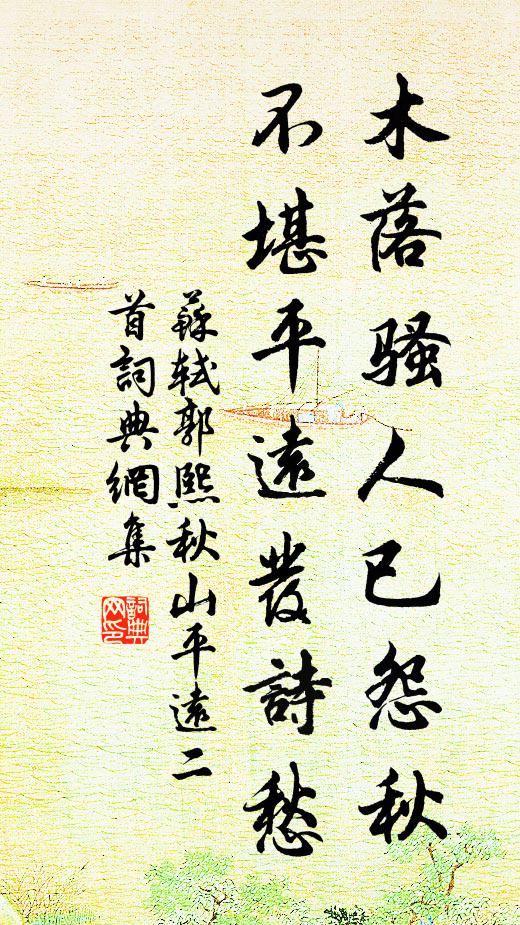 木落騷人已怨秋
不堪平遠發詩愁
蘇軾郭熙秋山平遠二
首詞典網集
詞典
网印